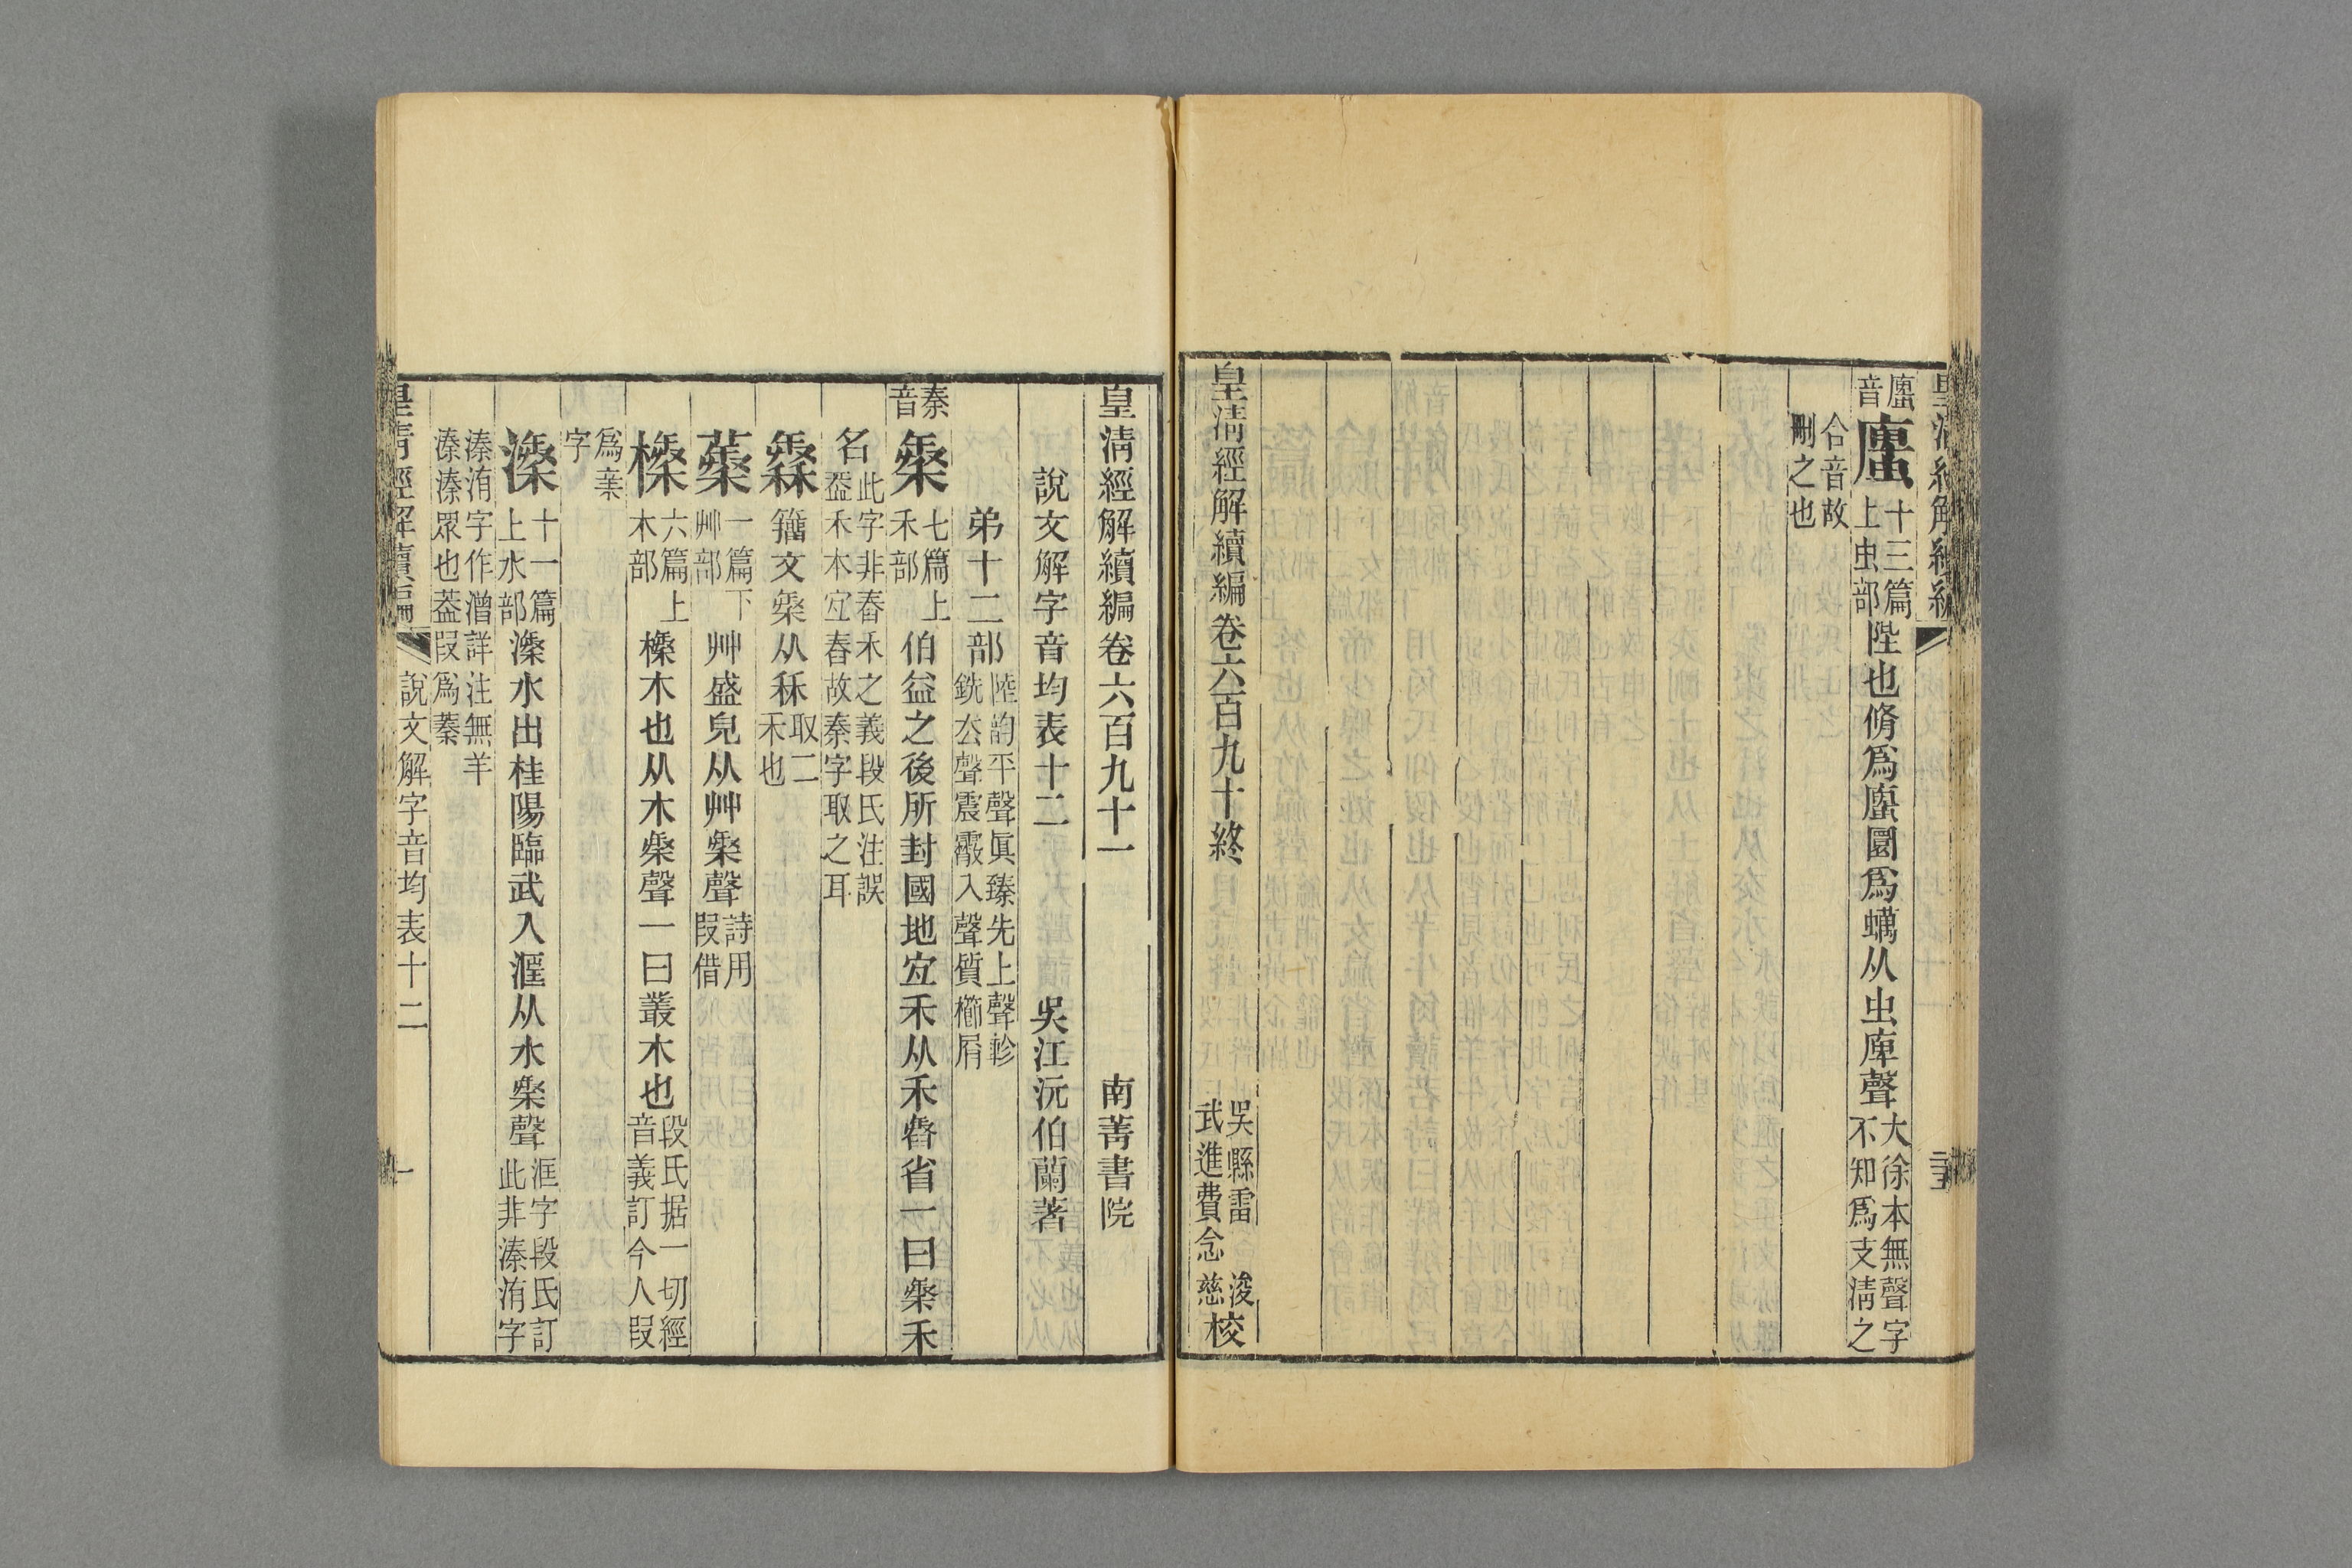 皇清經解續編
䗯音
𧕄
十三篇上虫部
陛也脩爲𧕄圜爲蠇从虫庳聲
大徐本無聲字不知爲支淸之
合音故刪之也
皇淸經解續編卷六百九十終
吳縣雷浚
武進費念慈
校
皇淸經解續編卷六百九十一
南菁書院
說文解字音均表十二
吳江沅伯蘭著
弟十二部
陸韵平聲眞臻先上聲軫銑厺聲震霰入聲質櫛屑
秦音
䅈
七篇上禾部
伯益之後所封國地宐禾从禾舂省一曰秦禾
名
此字非舂禾之義段氏注誤葢禾木宐舂故秦字取之耳
𥘿
籒文秦从秝
取二禾也
蓁
一篇下艸部
艸盛皃从艸秦聲
詩用叚借
榛
六篇上木部
榛木也从木秦聲一曰叢木也
段氏据一切經音義訂今人叚
爲亲字
溱
十一篇上水部
溱水出桂陽臨武入湹从水秦聲
洭字段氏訂此非溱洧字
溱洧字作潧詳注無羊溱溱眾也葢叚爲蓁
皇淸經解續編
說文解字音均表十二
一